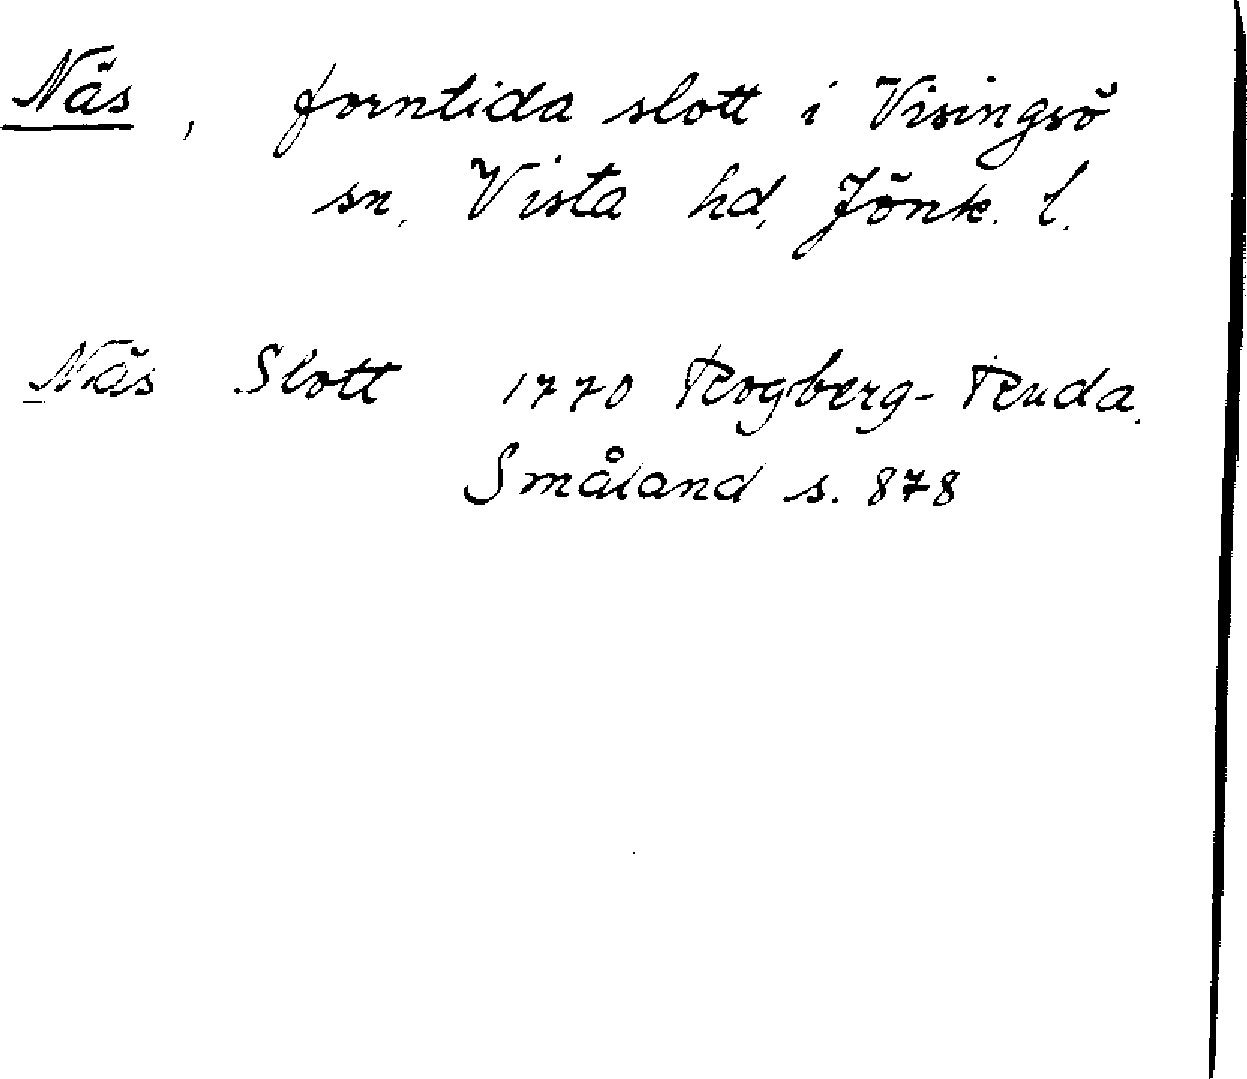 Näs, forntida slott i Visingsö
sn. Vista hd, Jönk. l.
Näs Slott 1770 Rogberg-Ruda.
Småland s. 878